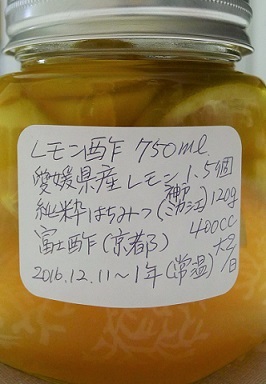 レモン酢 750ml
愛媛県産レモン1、5個
純粋はちみつ(神戸 120g
富士酢(京都) 400cc
2016.12.11~1年(常温) 大2/日